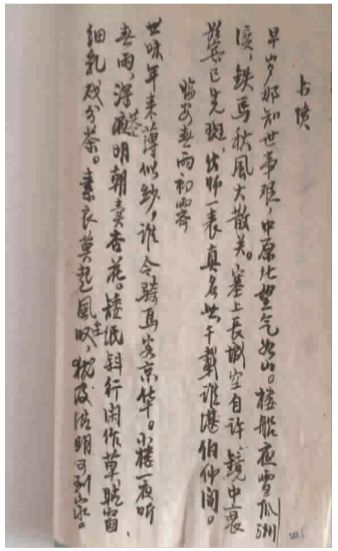 书愤
早岁那知世事艰，中原北望气如山。楼船夜雪瓜洲
渡，铁马秋风大散关。塞上長城空自许，镜中衰
鬓已先斑。出师一表真名世千载谁堪伯仲间。
临安春雨初霁
世味年来薄似纱，谁令骑马客京华。小楼一夜听
春雨，深巷明朝卖杏花。矮纸斜行闲作草，晴窗
细乳戏分茶。素衣莫起風尘叹，犹及清明可到家。